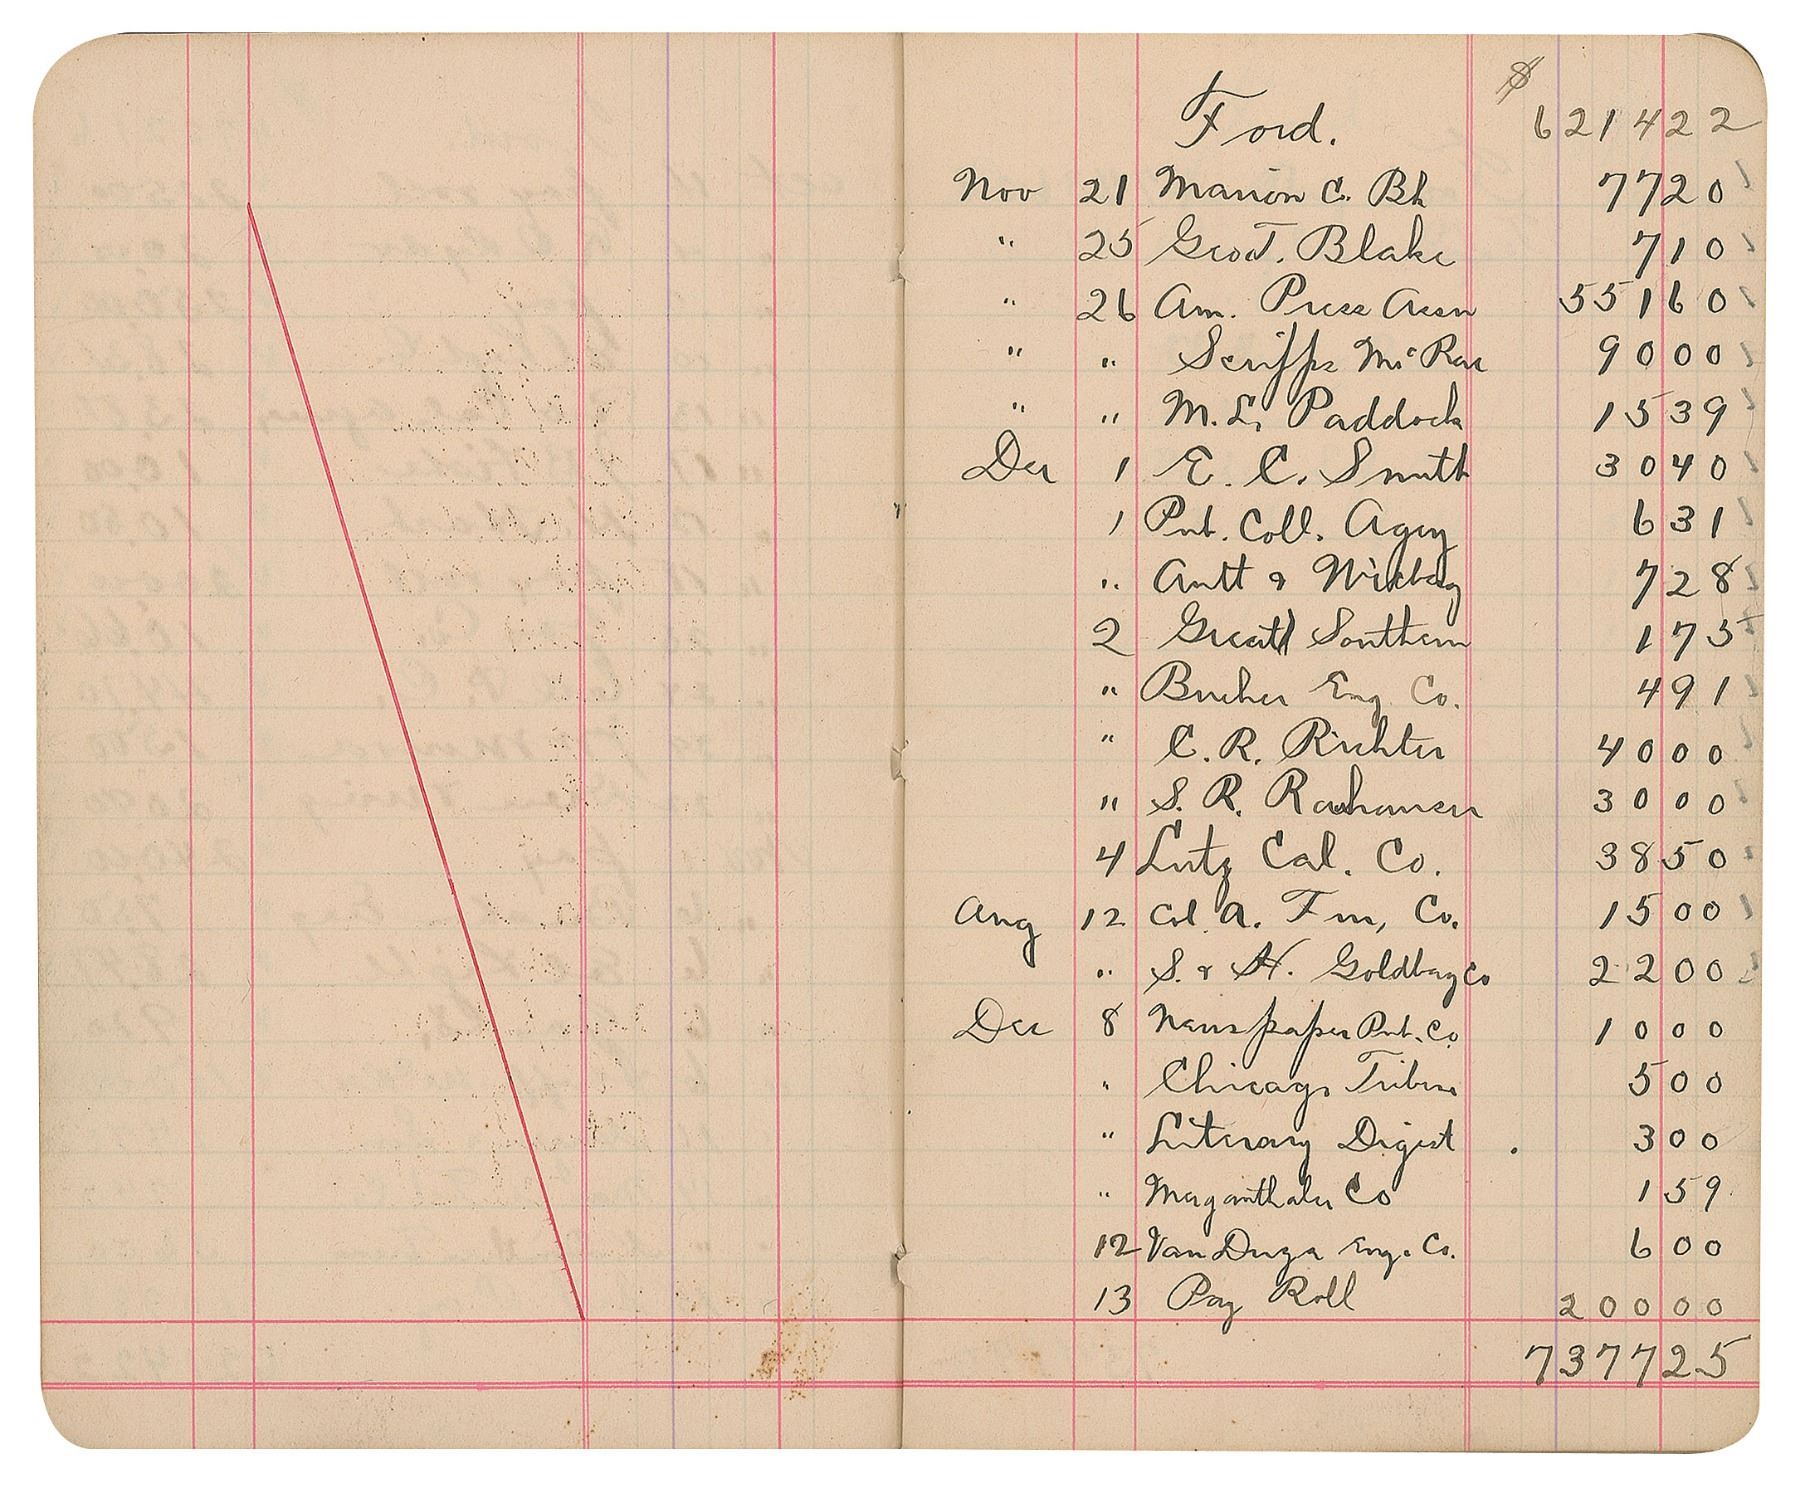 $
Ford. 621422
Nov 21 Marion C. Bk 7720
" 25 Geo T. Blake 710
" 26 Am. Press Assn 55160
" " Scripps McRae 9000
" " M. L. Paddock 1539
Dec 1 E. C. Smith 3040
1 Pnt. Coll. Agcy 631
" Antt & 728
2 Great Southern 175
" Bucher Eng Co. 491
" C. R. Richter 4000
" S. R. 3000
4 Lutz Cal. Co. 3850
Aug 12 Col. A. Co. 1500
" S. & H. Goldbergco 2200
Dec 8 Newspaper Pnt. Co 1000
" Chicago Tribune 500
" Literary Digest . 300
" Merganthaler Co 159
12 Van Duza Eng. Co. 600
13 Pay Roll 20000
737725